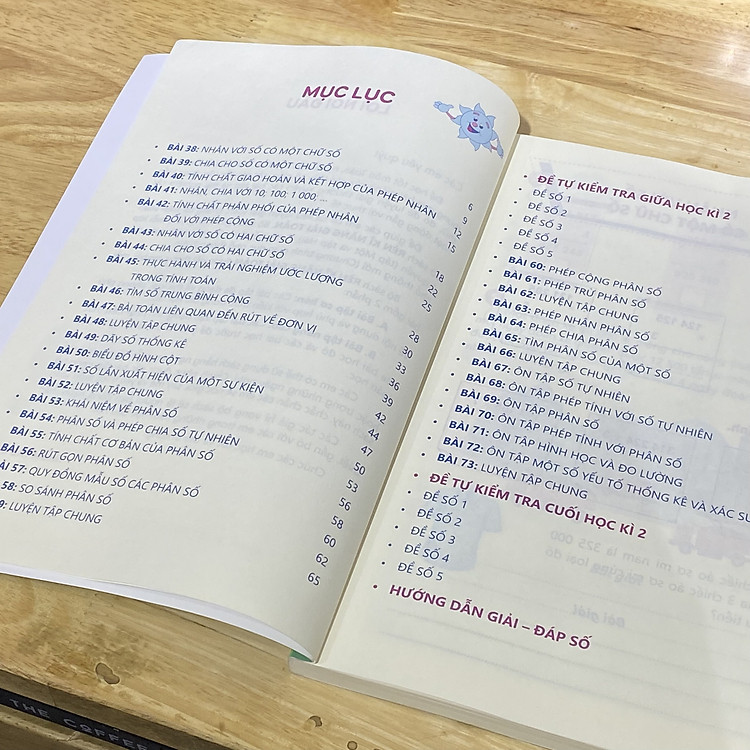 MỤC LỤC
BÀI 38: NHÂN VỚI SỐ CÓ MỘT CHỮ SỐ
BÀI 39: CHIA CHO SỐ CÓ MỘT CHỮ SỐ
BÀI 40: TÍNH CHẤT GIAO HOÁN VÀ KẾT HỢP CỦA PHÉP NHÂN 6
BÀI 41: NHÂN, CHIA VỚI 10; 100; 1 000; ... 9
BÀI 42: TÍNH CHẤT PHÂN PHỐI CỦA PHÉP NHÂN 12
ĐỐI VỚI PHÉP CỘNG 15
BÀI 43: NHÂN VỚI SỐ CÓ HAI CHỮ SỐ
BÀI 44: CHIA CHO SỐ CÓ HAI CHỮ SỐ 18
BÀI 45: THỰC HÀNH VÀ TRẢI NGHIỆM ƯỚC LƯỢNG 22
TRONG TÍNH TOÁN 25
BÀI 46: TÌM SỐ TRUNG BÌNH CỘNG
BÀI 47: BÀI TOÁN LIÊN QUAN ĐẾN RÚT VỀ ĐƠN VỊ 28
BÀI 48: LUYỆN TẬP CHUNG 30
BÀI 49: DÃY SỐ THỐNG KÊ 33
BÀI 50: BIỂU ĐỒ HÌNH CỘT 36
BÀI 51: SỐ LẦN XUẤT HIỆN CỦA MỘT SỰ KIỆN 39
BÀI 52: LUYỆN TẬP CHUNG 42
BÀI 53: KHÁI NIỆM VỀ PHÂN SỐ 44
BÀI 54: PHÂN SỐ VÀ PHÉP CHIA SỐ TỰ NHIÊN 47
BÀI 55: TÍNH CHẤT CƠ BẢN CỦA PHÂN SỐ 50
BÀI 56: RÚT GỌN PHÂN SỐ 53
BÀI 57: QUY ĐỒNG MẪU SỐ CÁC PHÂN SỐ 56
58: SO SÁNH PHÂN SỐ 58
9: LUYỆN TẬP CHUNG 60
62
65
ĐỀ TỰ KIỂM TRA GIỮA HỌC KÌ 2
ĐỀ SỐ 1
ĐỀ SỐ 2
ĐỀ SỐ 3
ĐỀ SỐ 4
ĐỀ SỐ 5
BÀI 60: PHÉP CỘNG PHÂN SỐ
BÀI 61: PHÉP TRỪ PHÂN SỐ
BÀI 62: LUYỆN TẬP CHUNG
BÀI 63: PHÉP NHÂN PHÂN SỐ
BÀI 64: PHÉP CHIA PHÂN SỐ
BÀI 65: TÌM PHÂN SỐ CỦA MỘT SỐ
BÀI 66: LUYỆN TẬP CHUNG
BÀI 67: ÔN TẬP SỐ TỰ NHIÊN
BÀI 68: ÔN TẬP PHÉP TÍNH VỚI SỐ TỰ NHIÊN
BÀI 69: ÔN TẬP PHÂN SỐ
BÀI 70: ÔN TẬP PHÉP TÍNH VỚI PHÂN SỐ
BÀI 71: ÔN TẬP HÌNH HỌC VÀ ĐO LƯỜNG
BÀI 72: ÔN TẬP MỘT SỐ YẾU TỐ THỐNG KÊ VÀ XÁC SU
BÀI 73: LUYỆN TẬP CHUNG
ĐỀ TỰ KIỂM TRA CUỐI HỌC KÌ 2
ĐỀ SỐ 1
ĐỀ SỐ 2
ĐỀ SỐ 3
ĐỀ SỐ 4
ĐỀ SỐ 5
HƯỚNG DẪN GIẢI – ĐÁP SỐ
THE COFFEE